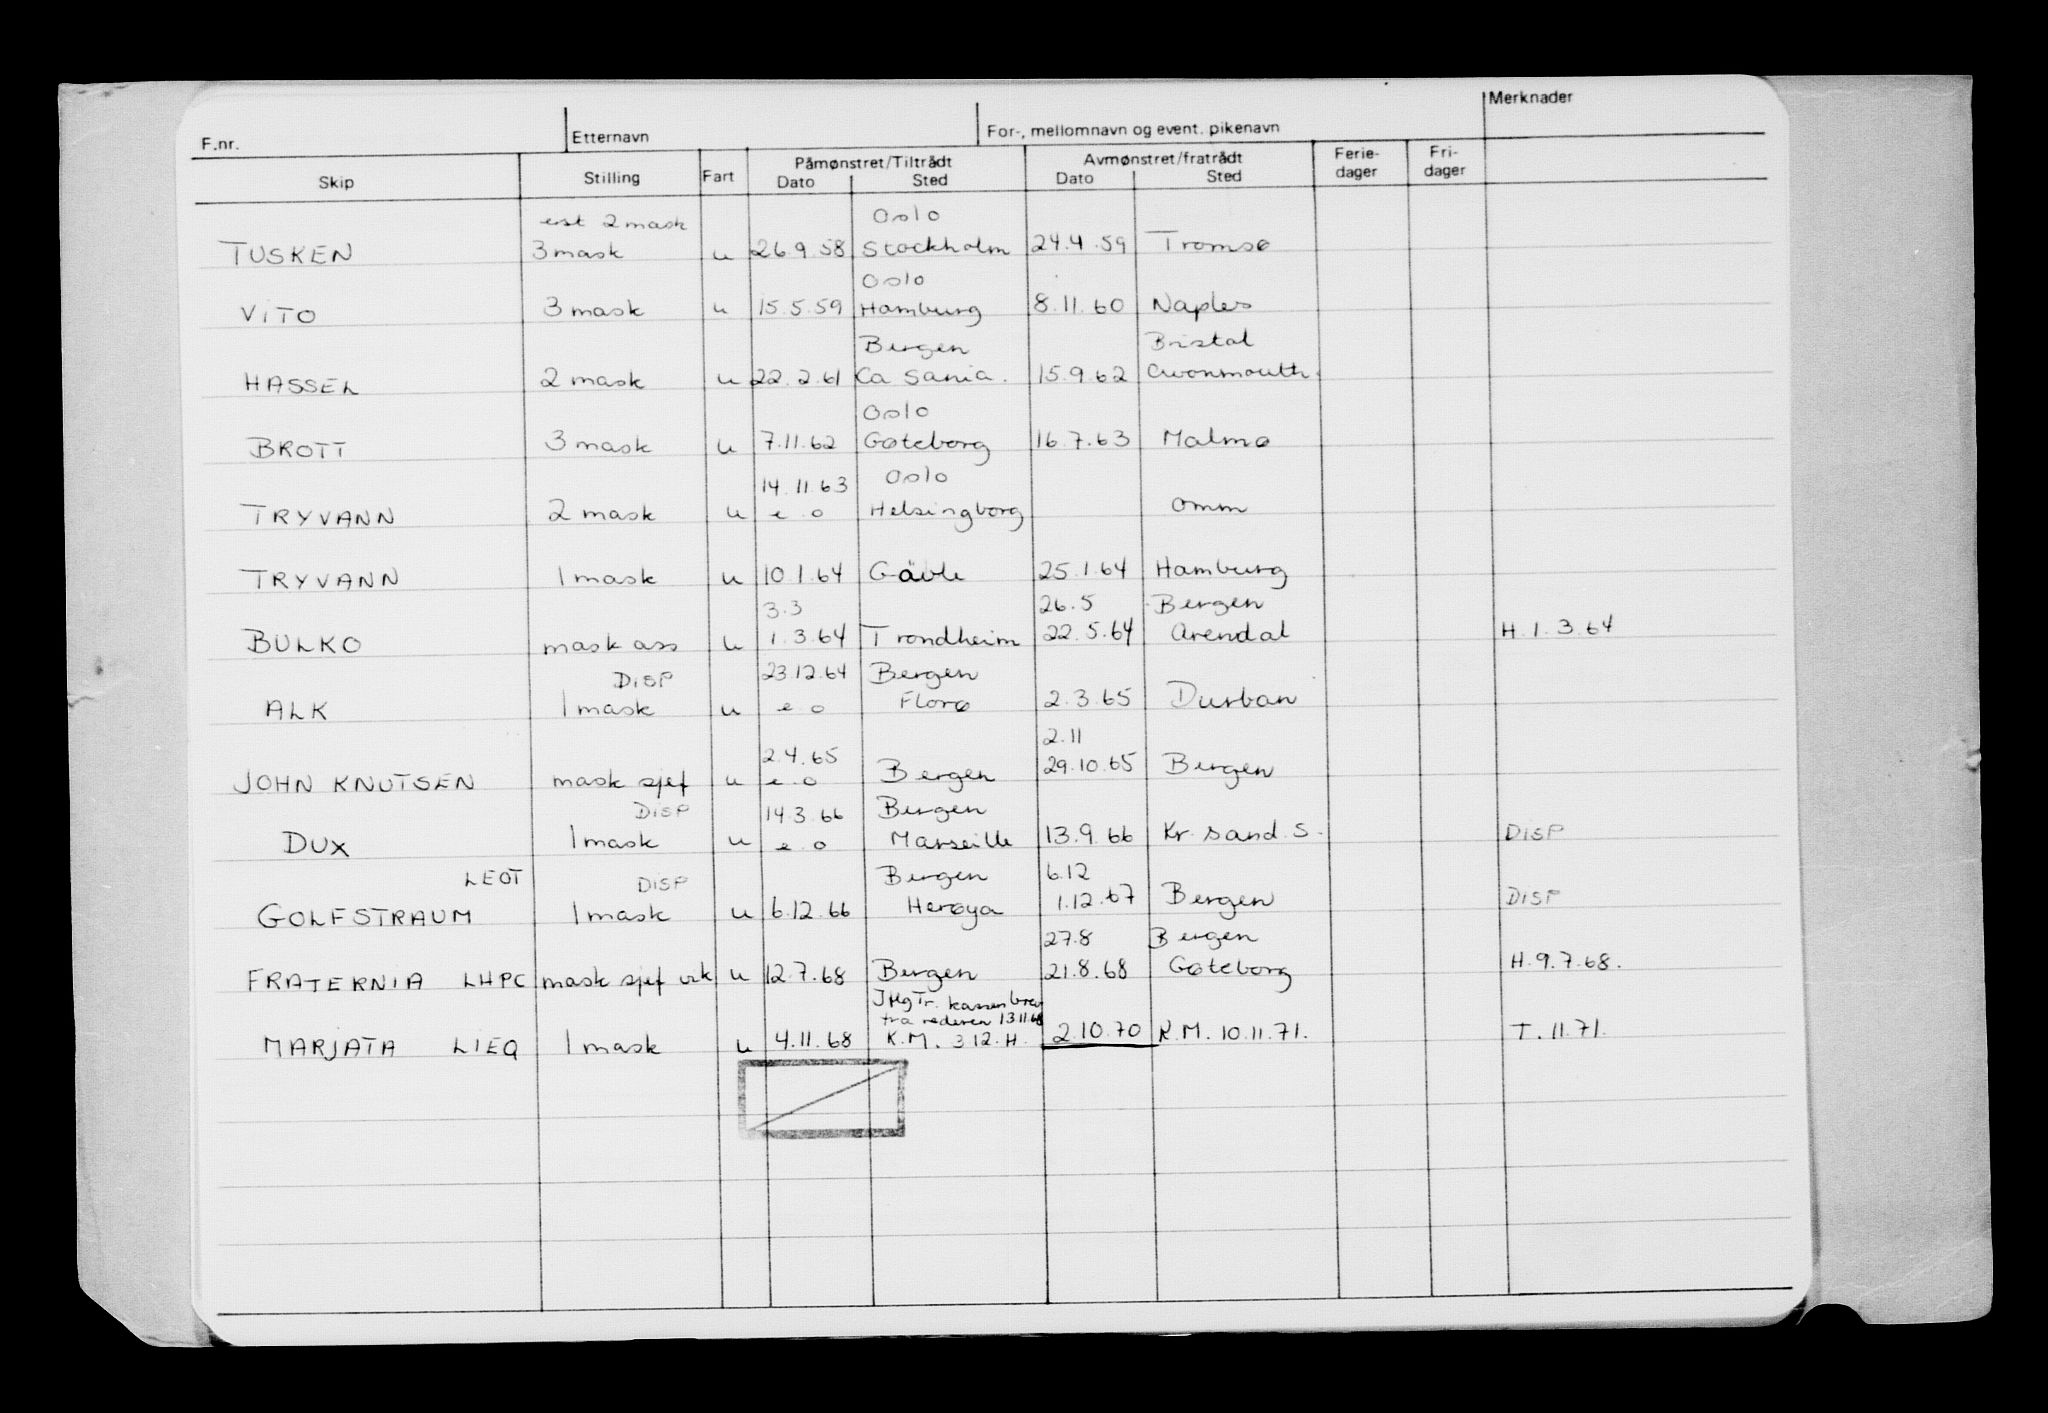 F.nr. Etternavn For-, mellomnavn og event. pikenavn Merknader
Skip Stilling Fart Påmønstret/Tiltrådt Avmønstret/fratrådt Ferie- Fri-
Dato Sted Dato Sted dager dager
est 2 mask Oslo
TUSKEN 3 mask u 26.9.58 Stockholm 24.4.59 Tromsø
Oslo
VITO 3 mask u 15.5.59 Hamburg 8.11.60 Naples
Bergen Bristol
HASSEL 2 mask u 22.2.61 Ca Sania. 15.9.62 Avonmouth
Oslo
BROTT 3 mask u 7.11.62 Gøteborg 16.7.63 Malmø
14.11.63 Oslo
TRYVANN 2 mask u e o Helsingborg omm
TRYVANN 1 mask u 10.1.64 Gävle 25.1.64 Hamburg
3.3 26.5 Bergen
BULKO mask ass u 1.3.64 Trondheim 22.5.64 Arendal H.1.3.64
DISP 23.12.64 Bergen
ALK 1 mask u e o Florø 2.3.65 Durban
2.4.65 2.11
JOHN KNUTSEN mask sjef u e o Bergen 29.10.65 Bergen
DISP 14.3.66 Bergen
DUX 1 mask u e o Marseille 13.9.66 Kr. sand. S. DISP
LEOT DISP Bergen 6.12
GOLFSTRAUM 1 mask u 6.12.66 Herøya 1.12.67 Bergen DISP
27.8 Bergen
FRATERNIA LHPC mask sjef vik u 12.7.68 Bergen 21.8.68 Gøteborg H.9.7.68.
Tr. kassen brev
fra rederen 13.11.68
MARJATA LIEQ 1 mask u 4.11.68 K.M. 3 12. H. 2.10.70 R.M. 10.11.71. T. 11.71.